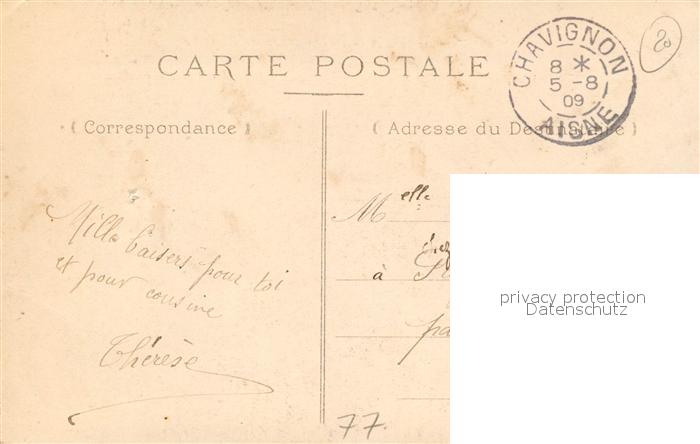 CARTE POSTALE
CHAVIGNON
8 *
5 - 8
09
AISNE
20
(Correspondance)
(Adresse du Destinataire)
Mille baisers pour toi
et pour cousine
Thérèse
Melle
chez
à
pa
privacy protection
Datenschutz
77.